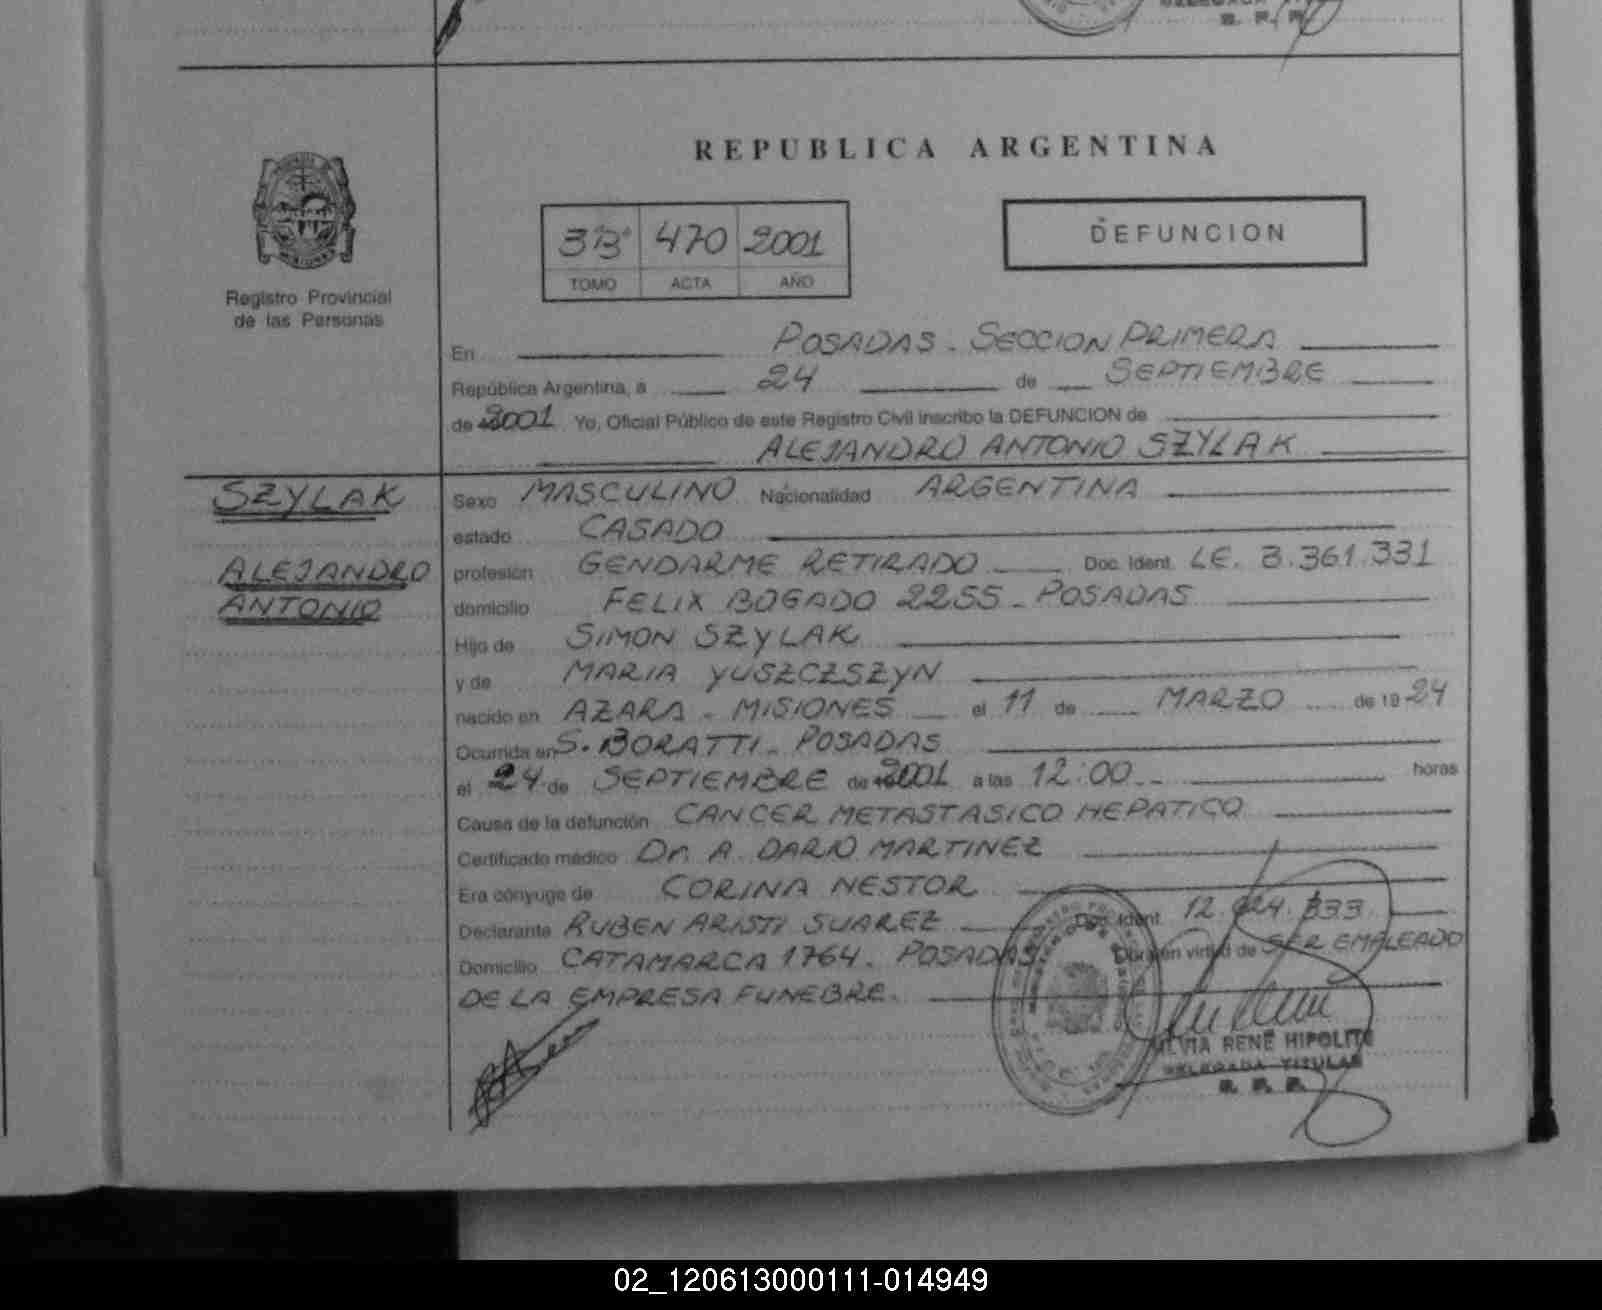 REPUBLICA ARGENTINA
470 2001
TOMO ACTA AÑO
DEFUNCION
Registro Provincial
de las Personas
En POSADAS - SECCION PRIMERA
República Argentina, a 24 de SEPTIEMBRE
de 2001 Yo, Oficial Público de este Registro Civil inscribo la DEFUNCION de
ALEJANDRO ANTONIO SZYLAK
SZYLAK
ALEJANDRO
ANTONIO
Sexo MASCULINO Nacionalidad ARGENTINA
estado CASADO
profesión GENDARME RETIRADO Doc. Ident. LE. 3.361.331
domicilio FELIX BOGADO 2255 - POSADAS
Hijo de SIMON SZYLAK
y de MARIA YUSZCZSZYN
nacido en AZARA - MISIONES el 11 de MARZO de 19 24
Ocurrida en S. BORATTI - POSADAS
el 24 de SEPTIEMBRE de 2001 a las 12:00 horas
Causa de la defunción CANCER METASTASICO HEPATICO
Certificado médico Dr. A. DARIO MARTINEZ
Era cónyuge de CORINA NESTOR
Declarante RUBEN ARISTI SUAREZ Doc. Ident. 12. 333
Domicilio CATAMARCA 1764 - POSADAS Obra en virtud de SER EMPLEADO
DE LA EMPRESA FUNEBRE.
SILVIA RENÉ HIPOLITE
DELEGADA TITULAR
R. P. P.
02_120613000111-014949